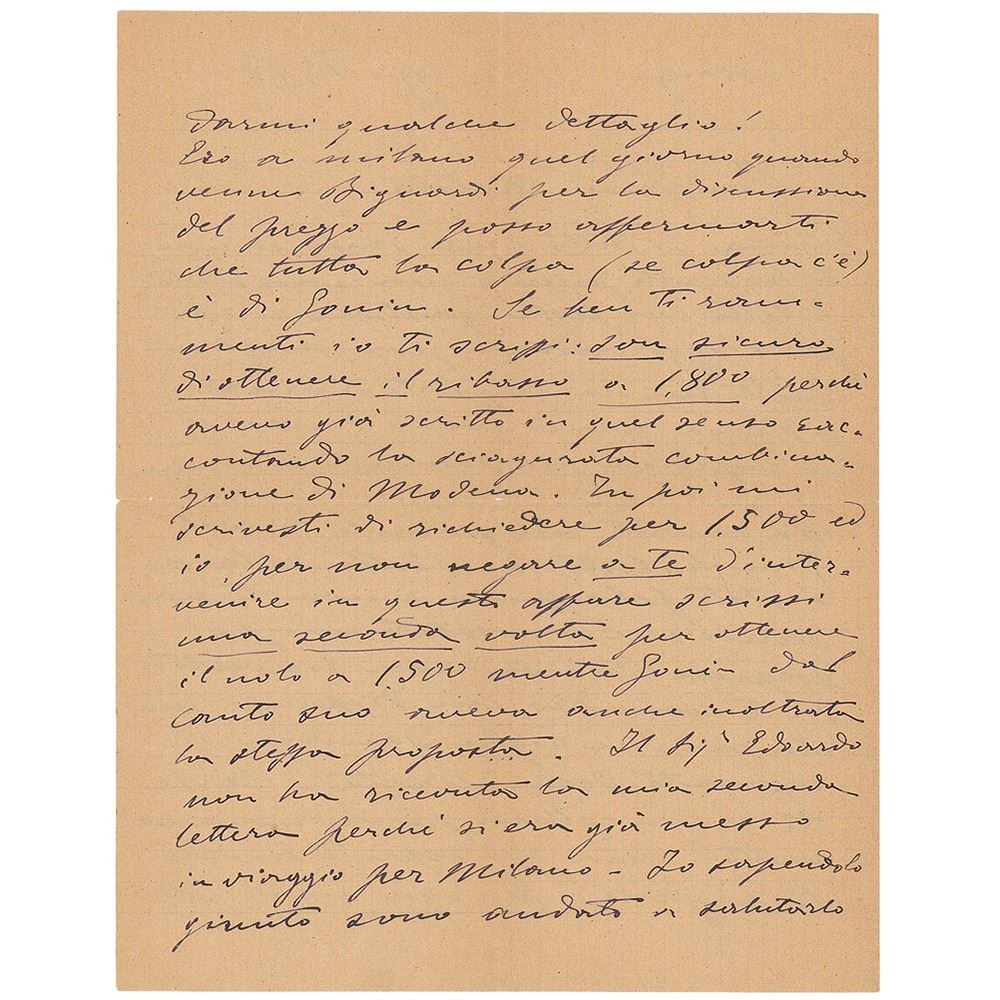 darmi qualche dettaglio!
Ero a Milano quel giorno quando
venne Bignardi per la discussione
del prezzo e posso affermarti
che tutta la colpa (se colpa c'è)
è di Gonin. Se ben ti ram-
menti io ti scrissi: son sicuro
di ottenere il ribasso a 1,800 perchè
avevo già scritto in quel senso rac-
contando la sciagurata combina-
zione di Modena. Tu poi mi
scrivesti di richiedere per 1,500 ed
io, per non negare a te d'inter-
venire in questi affare scrissi
una seconda volta per ottenere
il nolo a 1,500 mentre Gonin dal
canto suo aveva anche inoltrata
la stessa proposta. Il Sigr Edoardo
non ha ricevuta la mia seconda
lettera perchè si era già messo
in viaggio per Milano - Io sapendolo
giunto sono andato a salutarlo